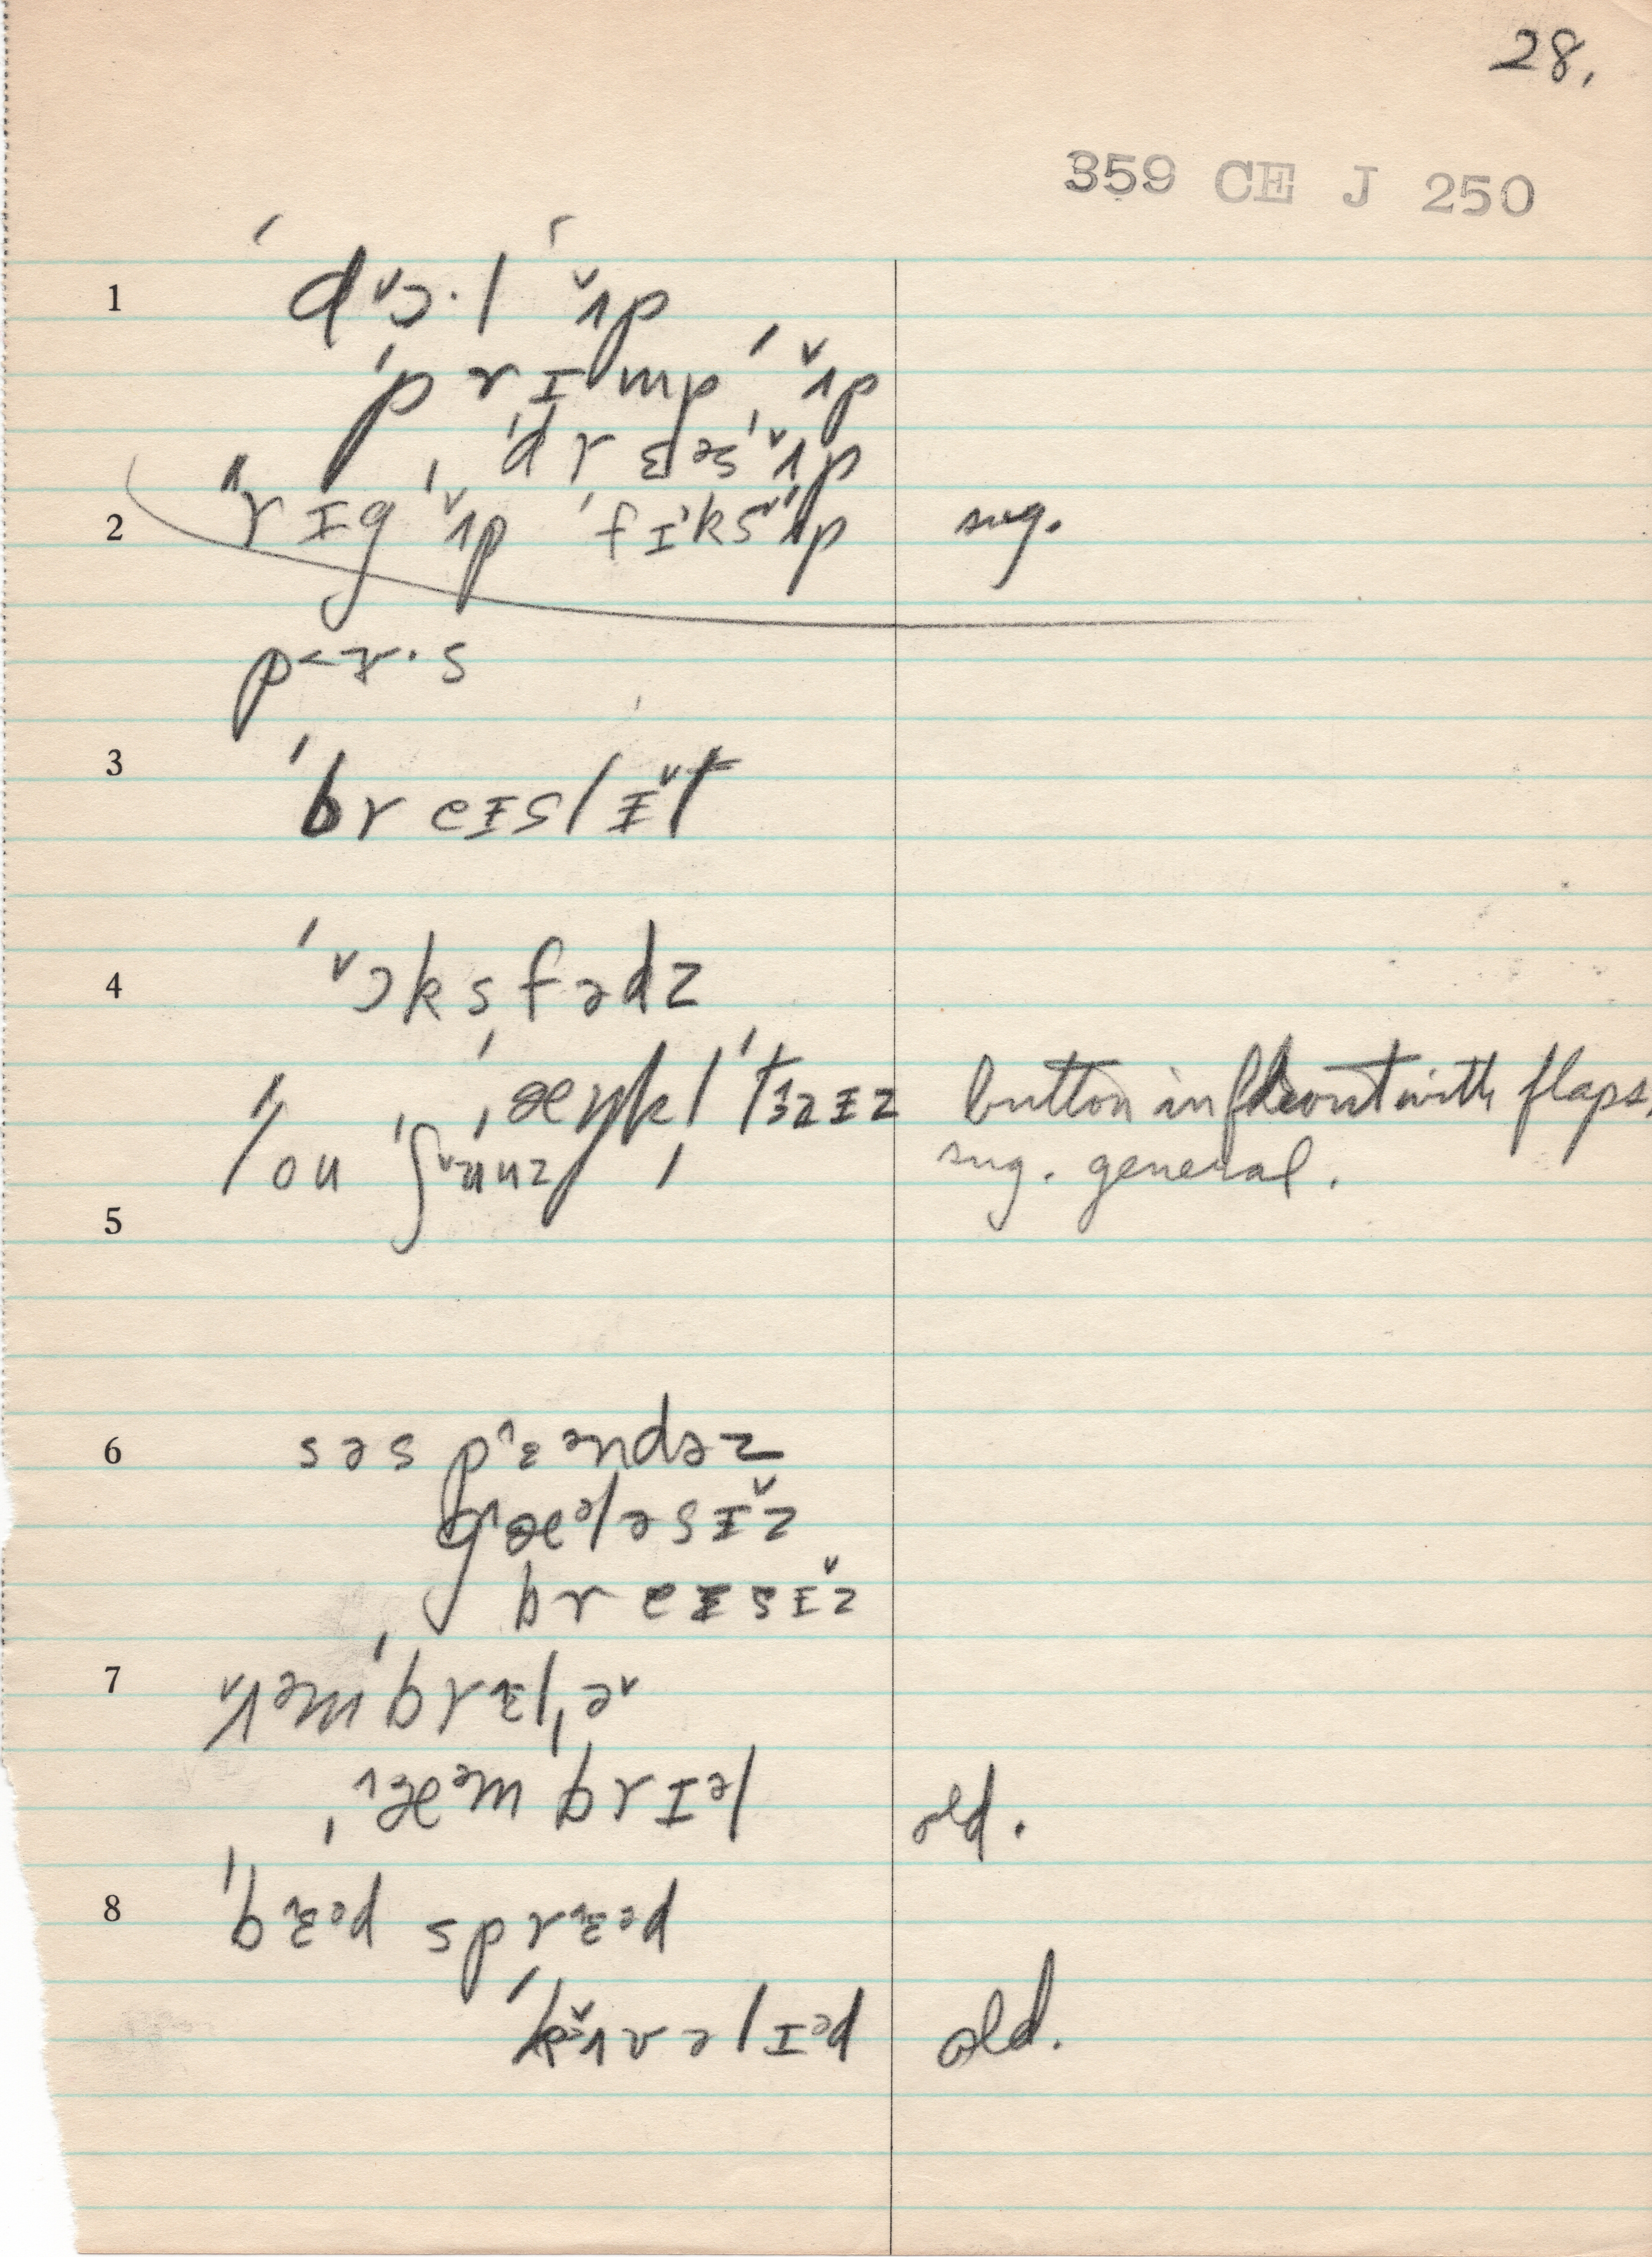 28.
359 CE J 250
1 ˈdɔ˅·l ˈʌ˅p
ˈprɪmp ˈʌ˅p
ˈdrɛəs ˈʌ˅p
2 ˈˈrɪg ˈʌ˅p ˈfɪks ˈʌ˅p sug.
3 ˈbreɪslɪ˅t
4 ˈɔ˅ksfədz
button in front with flaps.
sug. general.
5
6 səspɛ^əndəz
gæ^ələsɪ˅z
breɪsɪ˅z
7 ʌ˅mˈbrɛlˌə˅
ˌæ^əmˈbrɪəl old.
8 ˈbɛ^əd sprɛ^əd
ˈkʌ˅vəlɪəd old.